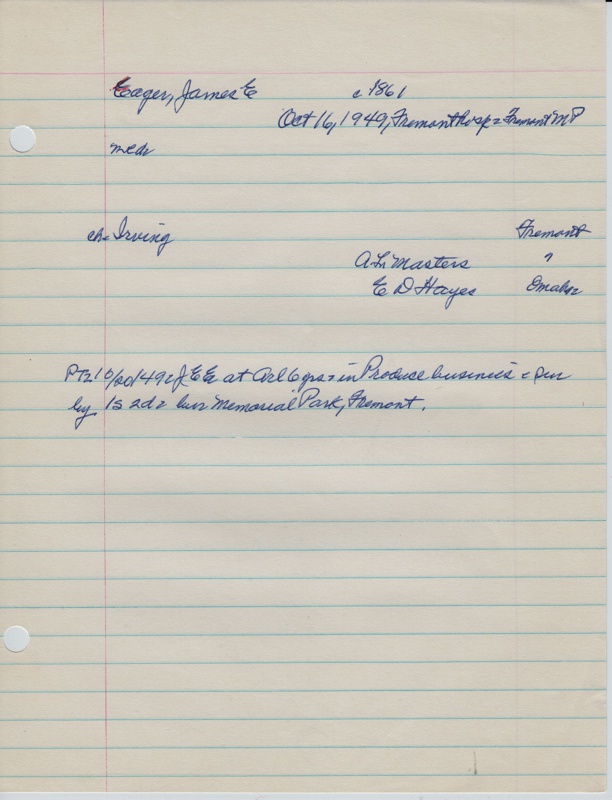 Eager, James E c 1861
Oct 16, 1949, Fremont Hosp = Fremont MP
ch = Irving Fremont
Masters "
E D Hayes Omaha
10/20/49: J E E at Arl 6 yrs = in Produce business = sur
by 1s 2d = bur Memorial Park, Fremont.